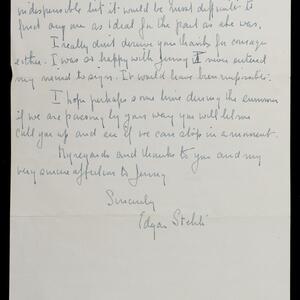 indispensable but it would be most difficult to
find anyone as ideal for the part as she was.
I really don't deserve your thanks for courage
either. I was so happy with Jenny it never entered
my mind to sign. It would have been impossible.
I hope perhaps some time during the summer
if we are passing by your way you will let me
call you up and see if we can stop in a moment.
My regards and thanks to you and my
very sincere affection to Jenny
Sincerely
Edgar Stehli